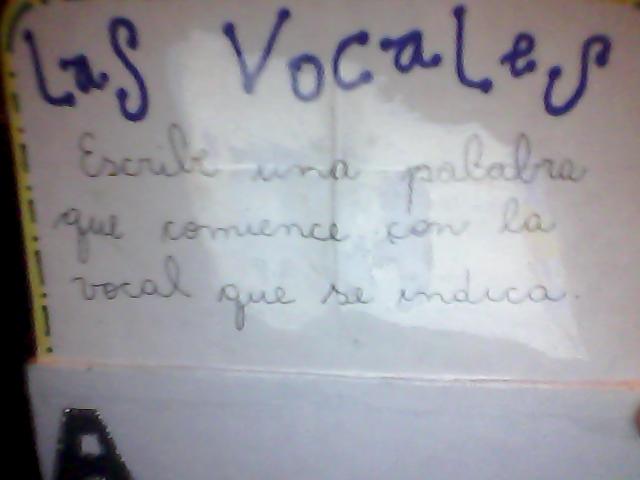 Las Vocales
Escribe una palabra
que comience con la
vocal que se indica.
A